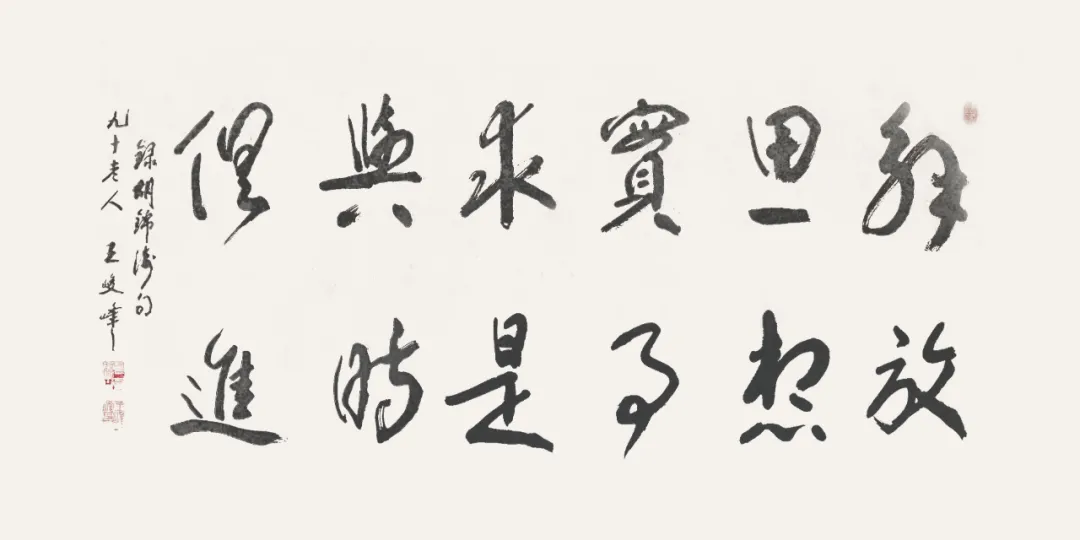 解放
思想
實事
求是
與時
俱進
録胡錦濤句
九十老人 王峻峰